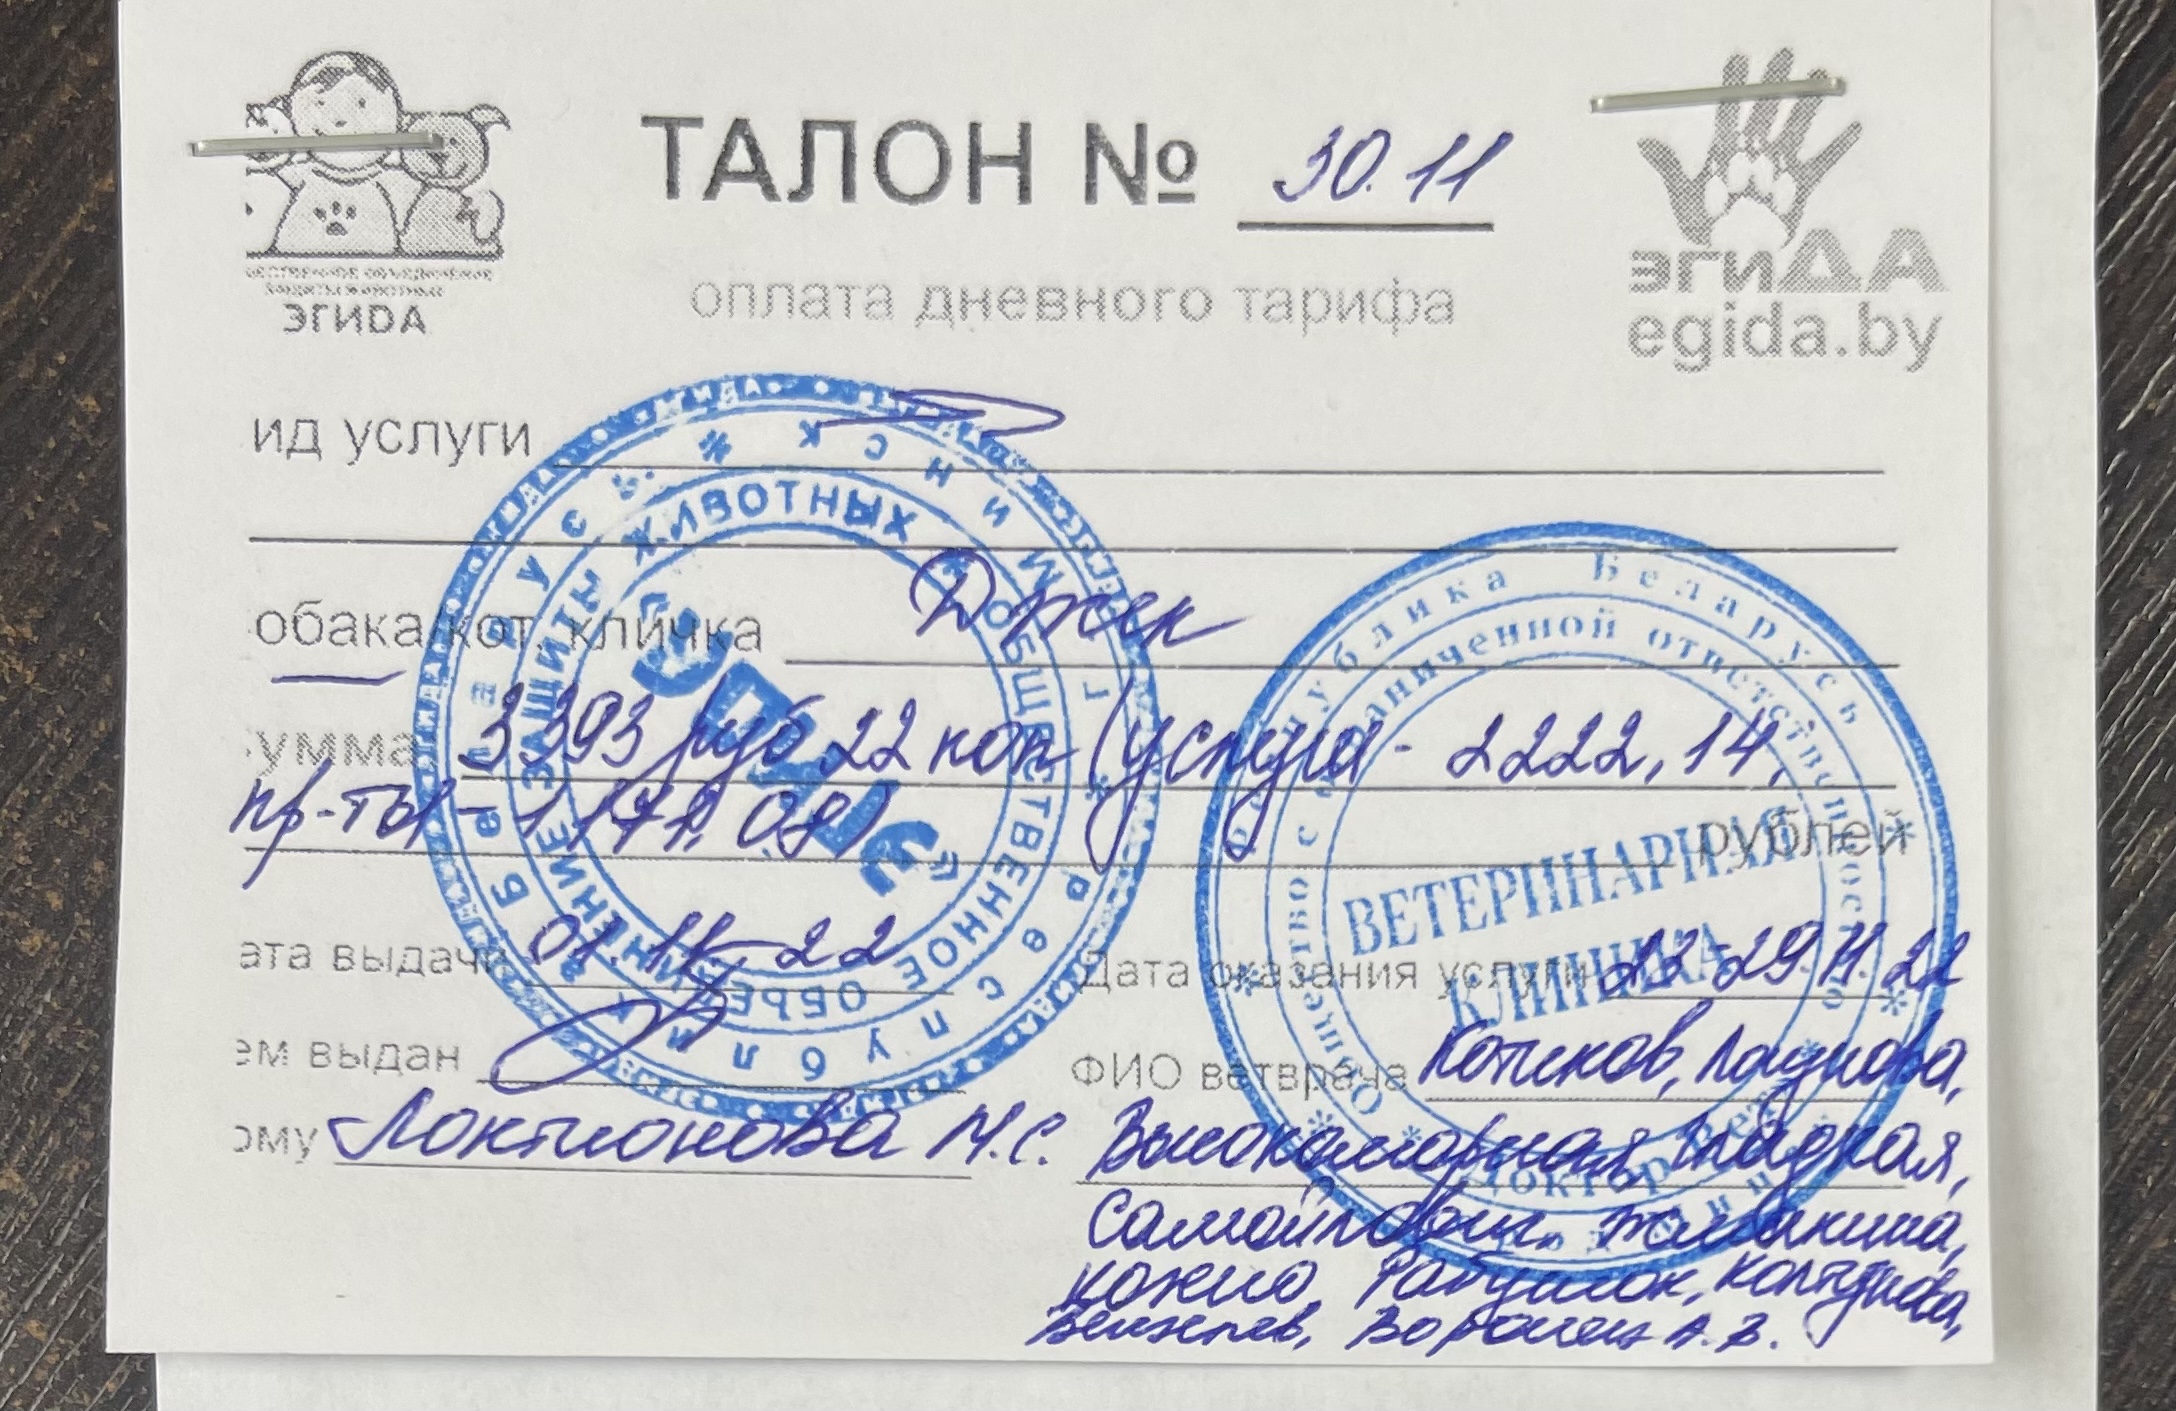 ТАЛОН № 30.11
ЭГИDА
эгиДА
egida.by
оплата дневного тарифа
ид услуги
обака/кот, кличка Джек
умма 3393 руб 22 коп (услуги - 2222,14,
пр-ты - 1171,08)
рублей
ата выдачи 01.11.22
Дата оказания услуги 22-29.11.22
ем выдан
ФИО ветврача Котиков,
ому Локтионова М.С.
Высокоморная, Гладкая,
Самойлович,
Кожно, Рабушок, Колтунова,
Воронец А.В.
Республика Беларусь * г. Минск
ОБЩЕСТВЕННОЕ ОБЪЕДИНЕНИЕ ЗАЩИТЫ ЖИВОТНЫХ
"ЭГИДА"
Республика Беларусь
Общество с ограниченной ответственностью
ВЕТЕРИНАРНАЯ
КЛИНИКА